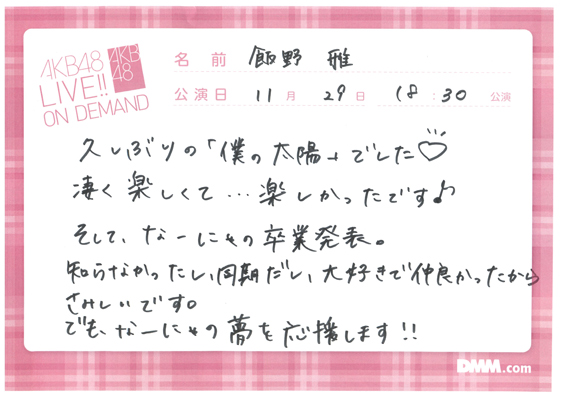 AKB48
LIVE!!
ON DEMAND
AKB
48
名前 飯野 雅
公演日 11月 29日 18:30 公演
久しぶりの「僕の太陽」でした♡
凄く楽しくて…楽しかったです♪
そして、なーにゃの卒業発表。
知らなかったし、同期だし、大好きで仲良かったから
さみしいです。
でも、なーにゃの夢を応援します!!
DMM.com